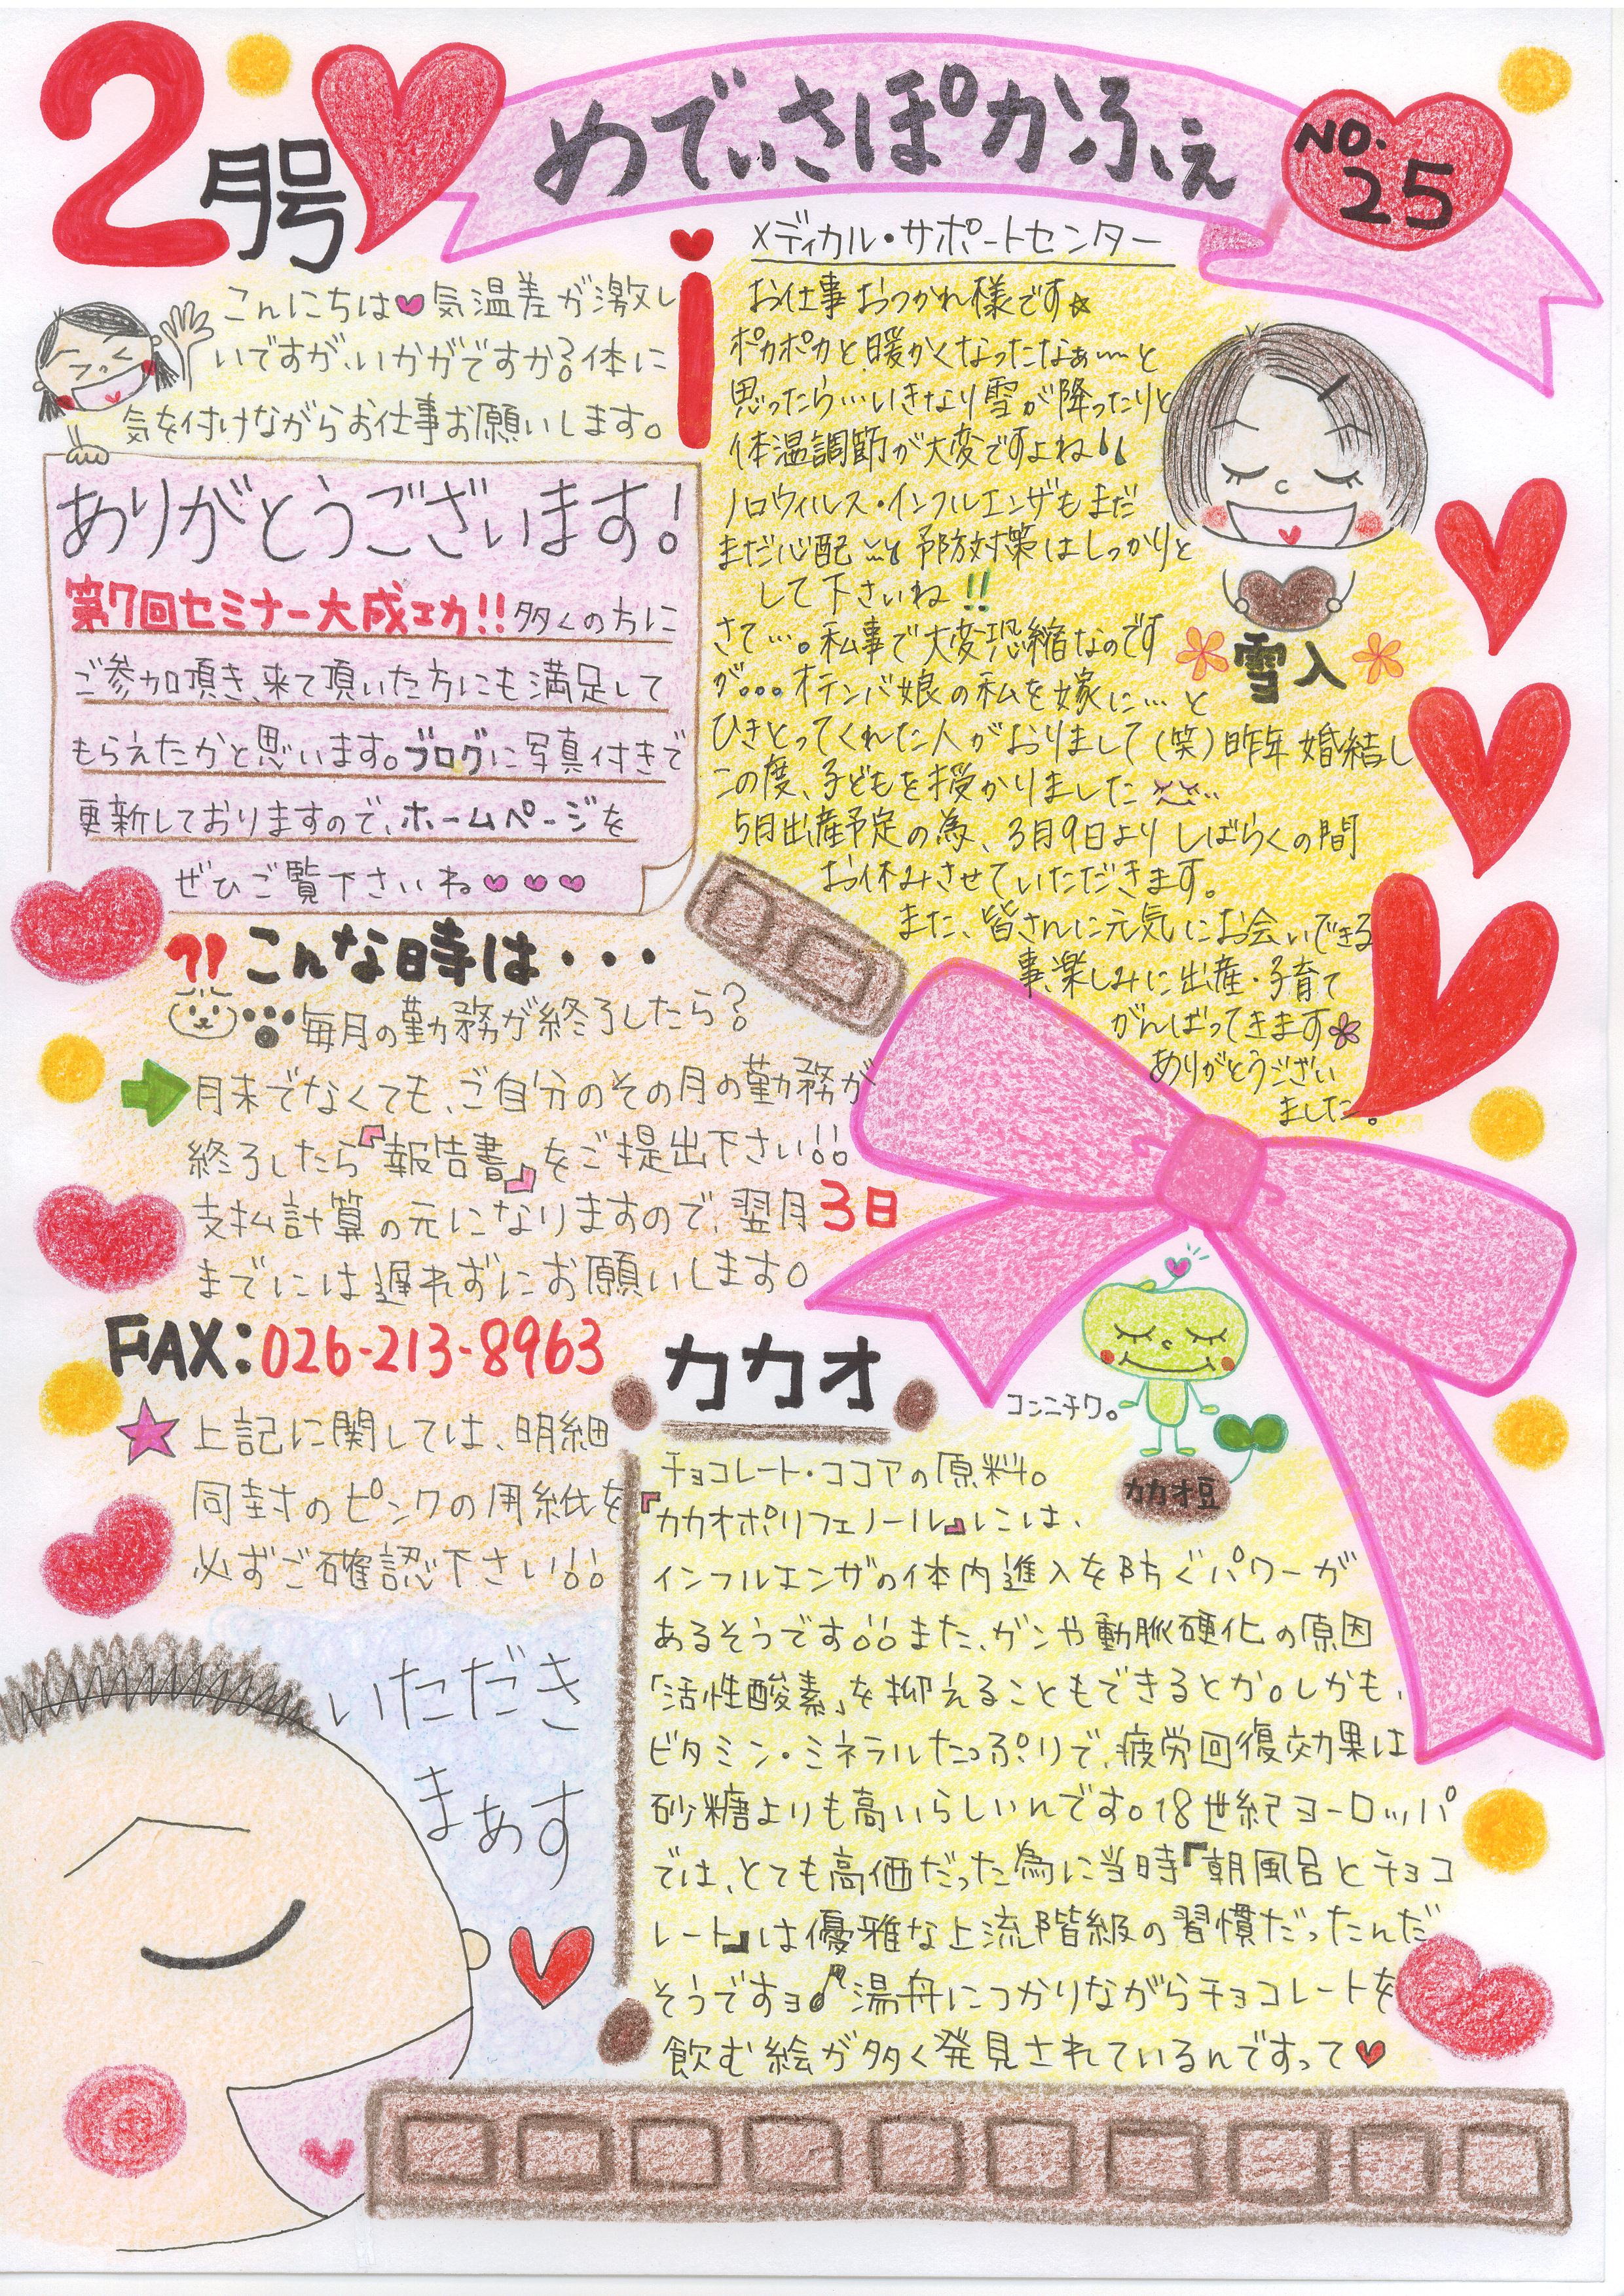 2月号
めでぃさぽかふぇ
NO.
25
メディカル・サポートセンター
こんにちは♥気温差が激し
いですが、いかがですか?体に
気を付けながらお仕事お願いします。
ありがとうございます!
第7回セミナー大成功!!多くの方に
ご参加頂き、来て頂いた方にも満足して
もらえたかと思います。ブログに写真付きで
更新しておりますので、ホームページを
ぜひご覧下さいね♥♥♥
お仕事おつかれ様です☆
ポカポカと暖かくなったなぁ〜と
思ったら…いきなり雪が降ったりと
体温調節が大変ですよね
ノロウィルス・インフルエンザもまだ
まだ心配…予防対策はしっかりと
して下さいね!!
さて…。私事で大変恐縮なのです
が…オテンバ娘の私を嫁に…と
ひきとってくれた人がおりまして(笑)昨年婚結し
この度、子どもを授かりました
5月出産予定の為、3月9日よりしばらくの間
お休みさせていただきます。
また、皆さんに元気にお会いできる
事、楽しみに出産・子育て
がんばってきます
ありがとうござい
ました。
雪入
?!こんな時は・・・
毎月の勤務が終了したら?
➡月末でなくても、ご自分のその月の勤務が
終了したら『報告書』をご提出下さい!!
支払計算の元になりますので、翌月3日
までには遅れずにお願いします。
FAX:026-213-8963
★上記に関しては、明細
同封のピンクの用紙を
必ずご確認下さい!!
いただき
まぁす
カカオ
コンニチワ。
カカオ豆
チョコレート・ココアの原料。
『カカオポリフェノール』には、
インフルエンザの体内進入を防ぐパワーが
あるそうです!!また、ガンや動脈硬化の原因
「活性酸素」を抑えることもできるとか。しかも、
ビタミン・ミネラルたっぷりで、疲労回復効果は
砂糖よりも高いらしいんです。18世紀ヨーロッパ
では、とても高価だった為に当時『朝風呂とチョコ
レート』は優雅な上流階級の習慣だったんだ
そうですョ♪湯舟につかりながらチョコレートを
飲む絵が多く発見されているんですって♥